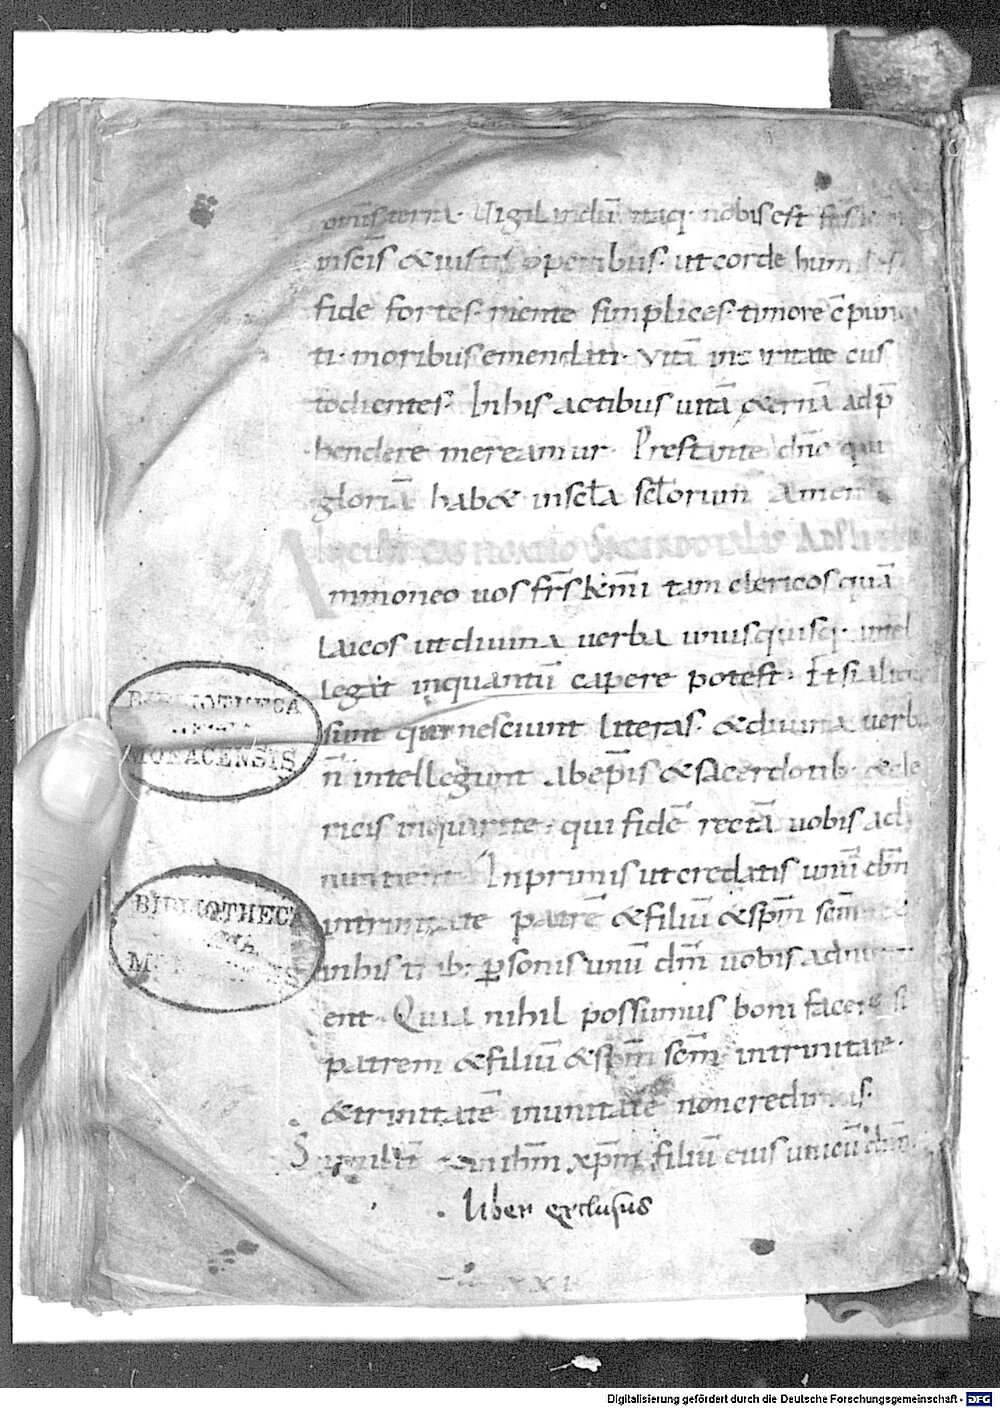 omīs terra. Uigilandū itaq· nobis est frs̄
in scīs & iustis operibus. ut corde humiles.
fide fortes. mente simplices. timore cōpunc
ti. moribus emendati. vitā in ueritate cus
todientes. In his actibus uitā &ernā adp̄
hendere mereamur. Prestante dnō qui
gloriā hab& in scl̄a scl̄orum Amen
SACERDOTALIS AD
Ammoneo uos frs̄ kmī tam clericos quā
laicos ut diuina uerba unusquisq· intel
legat inquantū capere potest. Et si aliqui
sunt qui nesciunt literas. & diuina uerba
n̄ intellegunt ab ep̄is & sacerdotib· & cle
ricis inquirite. qui fidē rectā uobis ad
nuntient. In primis ut credatis unū dm̄
in trinitate patrē & filiū & spm̄ scm̄
in his trib; ꝑsonis unū dm̄ uobis adnunti
ent. Quia nihil possumus boni facere si
patrem & filiū & spm̄ scm̄ in trinitate.
& trinitatē in unitate non credimus.
Similit̄ & in ihm̄ xpm̄ filiū eius unicū dnm̄
liber exclusus
XXI
BIBLIOTHECA
REGIA
MONACENSIS
BIBLIOTHECA
REGIA
MONACENSIS
Digitalisierung gefördert durch die Deutsche Forschungsgemeinschaft - DFG